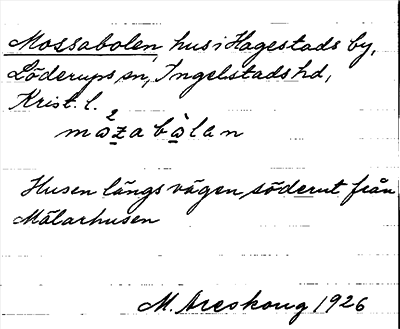 Mossabolen hus i Hagestads by,
Löderups sn, Ingelstads hd,
Krist. l.
mɷ²zabɷ̀lan
Husen längs vägen söderut från
Mälarhusen
M. Areskoug 1926